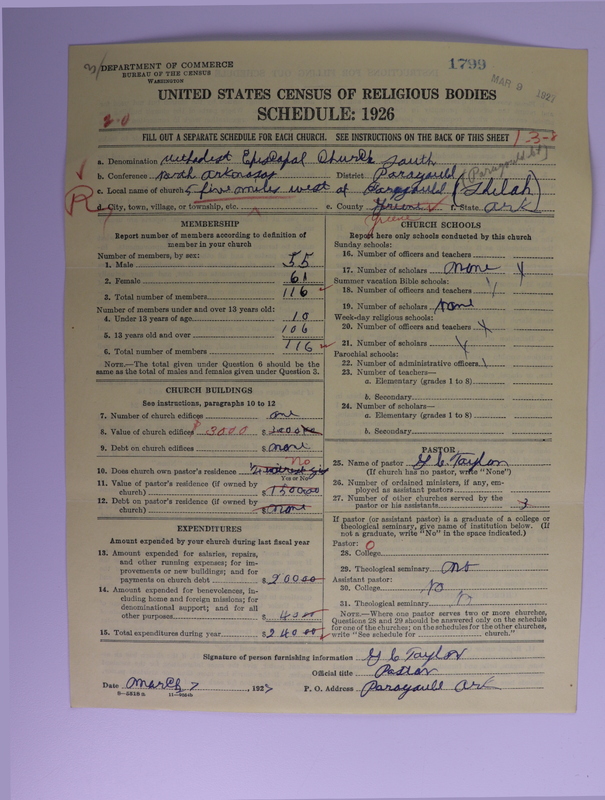 DEPARTMENT OF COMMERCE
BUREAU OF THE CENSUS
WASHINGTON
1799
MAR 9 1927
UNITED STATES CENSUS OF RELIGIOUS BODIES
SCHEDULE: 1926
2-0
FILL OUT A SEPARATE SCHEDULE FOR EACH CHURCH. SEE INSTRUCTIONS ON THE BACK OF THIS SHEET
a. Denomination Methodist Episcopal Church South
b. Conference North Arkansas District Paragould [Paragould Dt]
c. Local name of church 5 five miles west of Paragould (Shiloh)
R
d. City, town, village, or township, etc. e. County Greene f. State Ark
Greene
MEMBERSHIP
Report number of members according to definition of
member in your church
Number of members, by sex:
1. Male 55
2. Female 61
3. Total number of members 116
Number of members under and over 13 years old:
4. Under 13 years of age 10
5. 13 years old and over 106
6. Total number of members 116
NOTE.—The total given under Question 6 should be the
same as the total of males and females given under Question 3.
CHURCH BUILDINGS
See instructions, paragraphs 10 to 12
7. Number of church edifices one
8. Value of church edifices $3000 $
9. Debt on church edifices $ none
No
10. Does church own pastor's residence
Yes or No
11. Value of pastor's residence (if owned by
church) $ 1500.00
12. Debt on pastor's residence (if owned by
church) $ none
EXPENDITURES
Amount expended by your church during last fiscal year
13. Amount expended for salaries, repairs,
and other running expenses; for im-
provements or new buildings; and for
payments on church debt $ 200 00
14. Amount expended for benevolences, in-
cluding home and foreign missions; for
denominational support; and for all
other purposes $ 40 00
15. Total expenditures during year $ 240 00
CHURCH SCHOOLS
Report here only schools conducted by this church
Sunday schools:
16. Number of officers and teachers
17. Number of scholars none x
Summer vacation Bible schools:
18. Number of officers and teachers
19. Number of scholars none
Week-day religious schools:
20. Number of officers and teachers x
21. Number of scholars x
Parochial schools:
22. Number of administrative officers
23. Number of teachers—
a. Elementary (grades 1 to 8)
b. Secondary
24. Number of scholars—
a. Elementary (grades 1 to 8)
b. Secondary
PASTOR
25. Name of pastor Taylor
(If church has no pastor, write "None")
26. Number of ordained ministers, if any, em-
ployed as assistant pastors
27. Number of other churches served by the
pastor or his assistants 3
If pastor (or assistant pastor) is a graduate of a college or
theological seminary, give name of institution below. (If
not a graduate, write "No" in the space indicated.)
Pastor: 0
28. College
29. Theological seminary no
Assistant pastor:
30. College no
31. Theological seminary
NOTE.—Where one pastor serves two or more churches,
Questions 28 and 29 should be answered only on the schedule
for one of the churches; on the schedules for the other churches,
write "See schedule for church."
Signature of person furnishing information Taylor
Official title Pastor
Date March 7, 1927 P. O. Address Paragould Ark
8-5818a 11-9864b